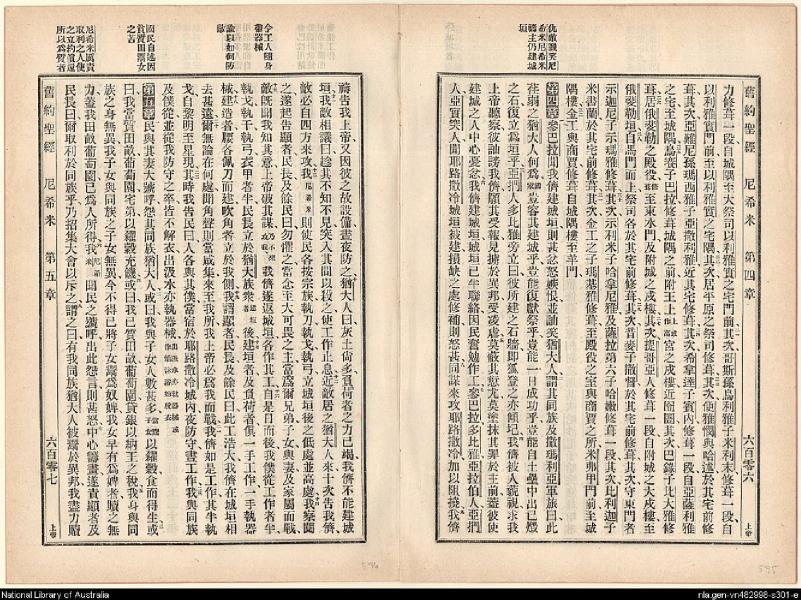 舊約聖經 尼希米 第四章 六百零六
力修葺一段自城隅至大祭司以利雅實之宅門前其次哥斯孫烏利雅子米利末修葺一段自
以利雅實門前至以利雅實之宅隅其次居平原之祭司修葺其次便雅憫與哈述於其宅前修
葺其次亞薩利雅
之宅至城隅烏賽子巴拉修葺城隅之前附王上宮之戍樓近囹圄其次巴錄子比大雅修
葺居俄斐勒之殿役修至東水門及附城之戍樓其次提哥亞人修葺一段自附城之大戍樓至
俄斐勒垣自馬門而上祭司各於其宅前修葺其次音麥子撒督於其宅前修葺其次守東門者
示迦尼子示瑪雅修葺其次示利米子哈拿尼雅及薩拉第六子哈嫩修葺一段其次比利迦子
米書蘭於其宅前修葺其次金工之子瑪基雅修葺至殿役之室與商賈之所米弗甲門前至城
隅樓金工與商賈修葺自城隅樓至羊門
第四章 參巴拉聞我儕建城垣則甚忿怒嫉恨並訕笑猶大人謂其同族及撒瑪利亞軍旅曰此
荏弱之猶大人何為
之石復立為垣乎亞捫人多比雅旁立曰彼所建之石牆即狐登之亦傾圮我儕被人藐視求我
上帝聽察彼訕謗我儕願其受報見擄於異邦
建城之人中心憂忿我儕建城垣城垣已半聯絡因民奮勉作工參巴拉多比雅亞拉伯人亞捫
人亞實突人聞耶路撒冷城垣被建損缺之處修補則怒甚同謀來攻耶路撒冷加以阻撓我儕
上帝
仇敵譏笑尼
希米尼希米
禱主仍建城
垣
舊約聖經 尼希米 第五章 六百零七
禱告我上帝又因彼之故設備晝夜防之猶大人曰灰土尚多負荷者之力已竭我儕不能建城
垣我敵相議曰趁其不知不見突入其間以殺之使工作止息近敵居之猶大人來十次告我儕
敵必自四方來攻我則使民各按宗族執刀執戈執弓立城垣後之低處並高處我察閱
之遂起告顯者民長及餘民曰勿懼之當念至大可畏之主當為爾兄弟子女與妻及家屬而戰
敵既聞我知其意上帝破其謀我儕遂返城垣各作其工自是日而後我僕從工作者半
執戈執干執弓衣甲者半民長立於猶大族衆後建垣者及負荷者俱一手工作一手執器
械建造者腰各佩刀而建吹角者立於我側我謂顯者民長及餘民曰此工浩大我儕在城垣相
去甚遠爾無論在何處聞角聲則當咸集來至我所我上帝必為我而戰我儕如是工作其半執
戈自黎明至星現其時我告民曰人各與其僕當宿於耶路撒冷城內夜防守晝工作我與同族
及僕從並從我防守之卒皆不解衣出汲水亦執器械
第五章 民與其妻大號呼怨其同族猶大人或曰我與子女人數甚多以糴穀食而得生或
曰我當質田畝葡萄園宅第以糴穀充饑或曰我已質田畝葡萄園貸銀以納王之稅我身與同
族之身無異我子女與同族之子女無異今不得已將子女鬻為奴婢我女早有為婢者贖之無
力蓋我田畝葡萄園已為人所得我聞民之號呼出此怨言則甚怒中心籌畫遂責顯者及
民長曰爾取利於同族乎乃招集大會以斥之謂之曰有我同族猶大人被鬻於異邦我盡力贖
上帝
令工人隨身
帶器械
論以如何防
敵
國民自述因
貧質田鬻女
之苦
尼希米厲責
取利之人使
之立約債還
所以為質者
596
595
National Library of Australia
nla.gen-vn482998-s301-e